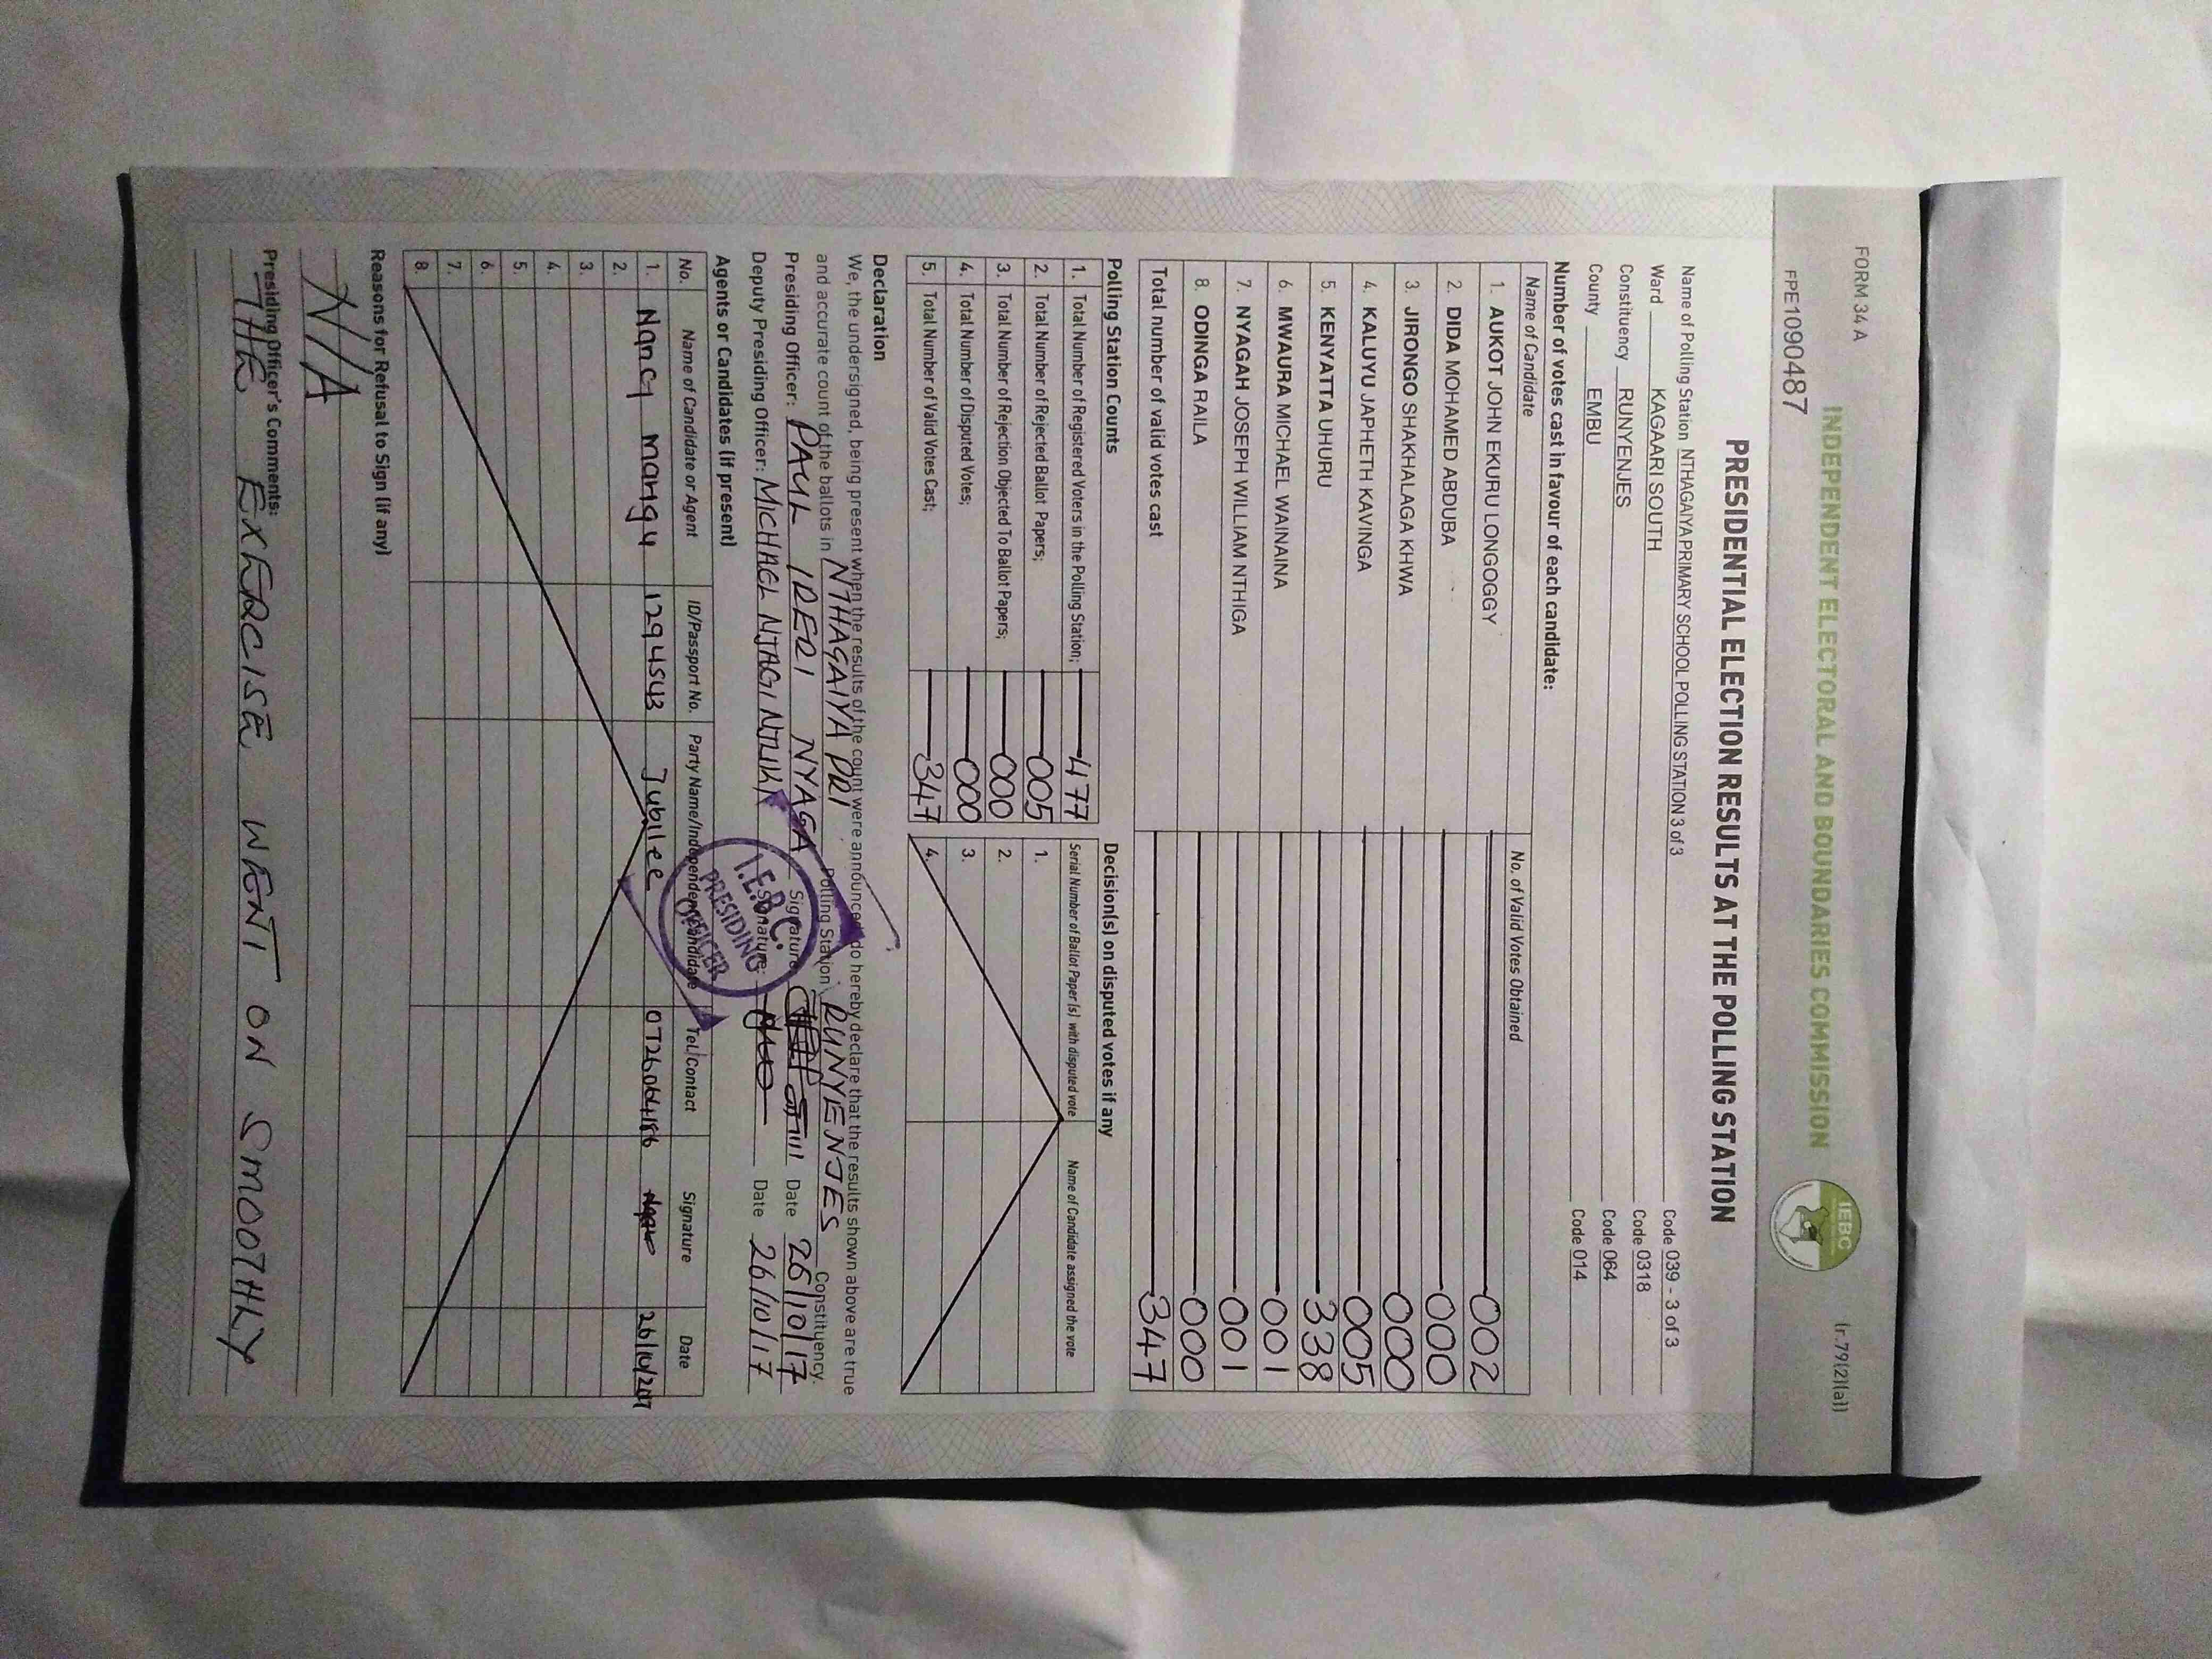 FORM 34 A
(r.79(2)(a))
INDEPENDENT ELECTORAL AND BOUNDARIES COMMISSION
IEBC
FPE1090487
PRESIDENTIAL ELECTION RESULTS AT THE POLLING STATION
Name of Polling Station NTHAGAIYA PRIMARY SCHOOL POLLING STATION 3 of 3 Code 039 - 3 of 3
Ward KAGAARI SOUTH Code 0318
Constituency RUNYENJES Code 064
County EMBU Code 014
Number of votes cast in favour of each candidate:
Name of Candidate No. of Valid Votes Obtained
1. AUKOT JOHN EKURU LONGOGGY 002
2. DIDA MOHAMED ABDUBA 000
3. JIRONGO SHAKHALAGA KHWA 000
4. KALUYU JAPHETH KAVINGA 005
5. KENYATTA UHURU 338
6. MWAURA MICHAEL WAINAINA 001
7. NYAGAH JOSEPH WILLIAM NTHIGA 001
8. ODINGA RAILA 000
Total number of valid votes cast 347
Polling Station Counts
1. Total Number of Registered Voters in the Polling Station; 477
2. Total Number of Rejected Ballot Papers; 005
3. Total Number of Rejection Objected To Ballot Papers; 000
4. Total Number of Disputed Votes; 000
5. Total Number of Valid Votes Cast; 347
Decision(s) on disputed votes if any
Serial Number of Ballot Paper (s) with disputed vote Name of Candidate assigned the vote
1.
2.
3.
4.
Declaration
We, the undersigned, being present when the results of the count were announced do hereby declare that the results shown above are true
and accurate count of the ballots in NTHAGAIYA PRI Polling Station RUNYENJES Constituency.
Presiding Officer: PAUL IRERI NYAGA Signature Date 26/10/17
Deputy Presiding Officer: MICHAEL NJAGI Signature: Date 26/10/17
I.E.B.C.
PRESIDING
OFFICER
Agents or Candidates (if present)
No. Name of Candidate or Agent ID/Passport No. Party Name/Independent Candidate Tel/Contact Signature Date
1. Nancy 1294543 Jubilee 26/10/2017
2.
3.
4.
5.
6.
7.
8.
Reasons for Refusal to Sign (if any)
N/A
Presiding Officer's Comments:
THE EXERCISE WENT ON SMOOTHLY